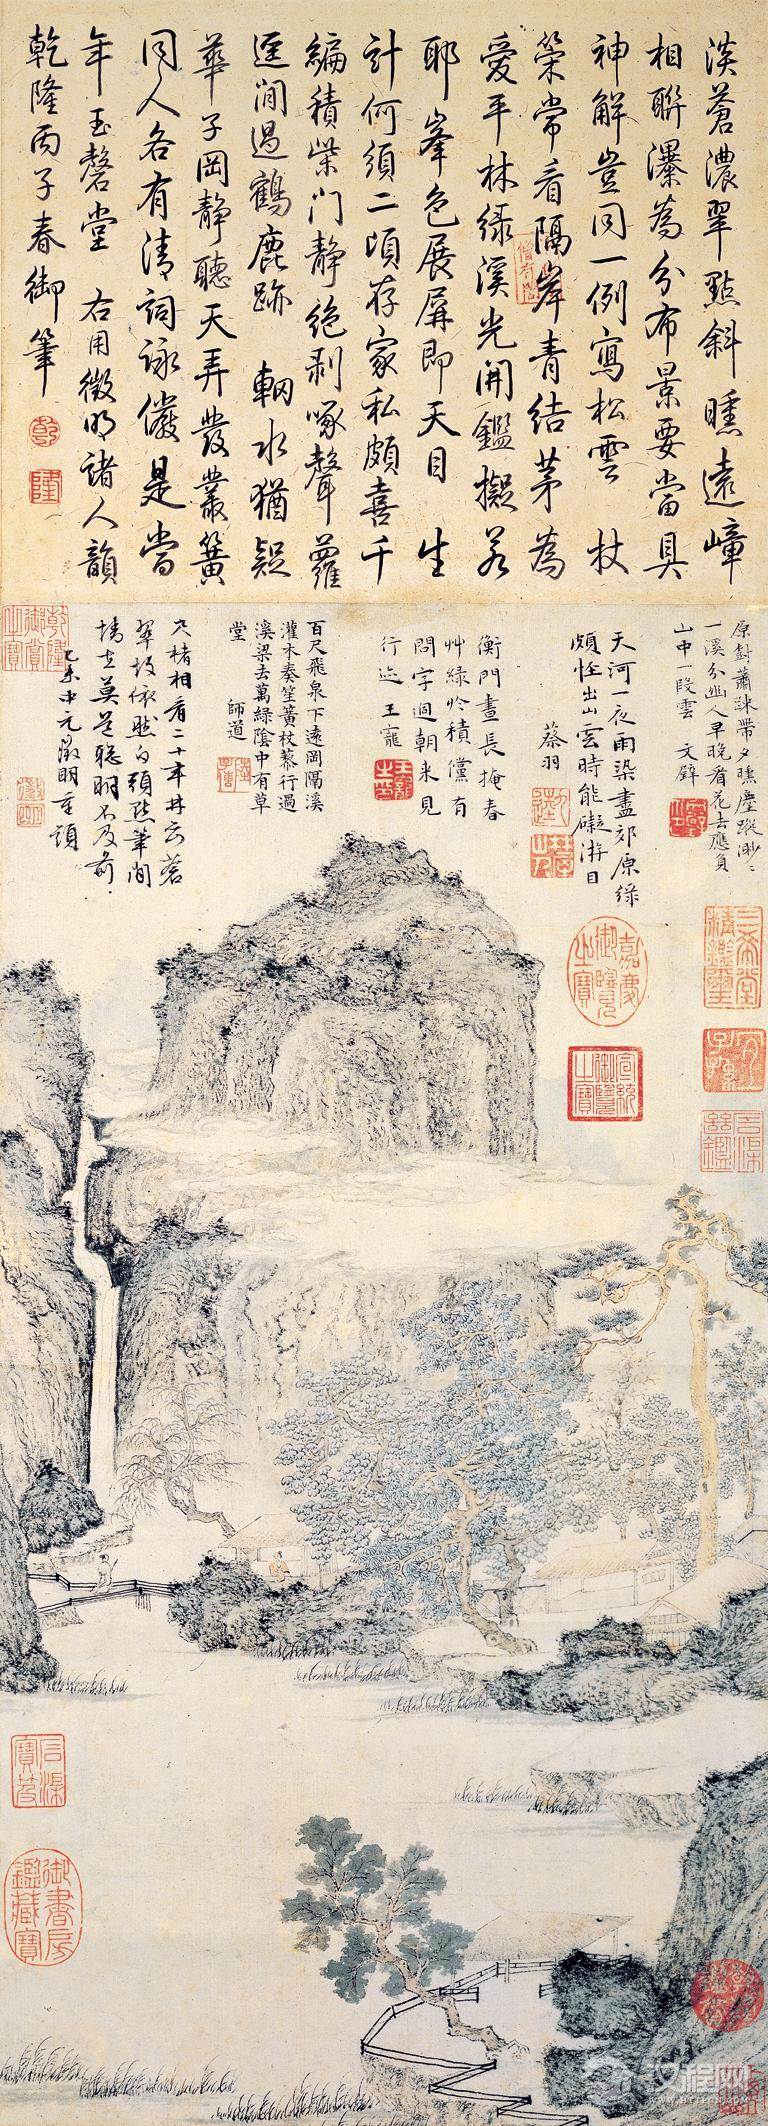 淡蒼濃翠點斜曛遠嶂
相聯瀑為分布景要當具
神解豈同一例寫松雲 杖
策常看隔岸青結茅為
愛平林綠溪光開鑑擬若
耶峯色展屏即天目 生
計何須二頃存家私頗喜千
編積柴門靜絶剥啄聲蘿
逕閒過鶴鹿跡 輞水猶疑
華子岡靜聽天弄發叢簧
同人各有清詞詠儼是當
年玉磬堂 右用徵明諸人韻
乾隆丙子春御筆
乾
隆
原樹蕭疎帶夕曛塵蹤渺渺
一溪分幽人早晚看花去應負
山中一段雲 文壁
天河一夜雨染盡郊原綠
頗怪出山雲時能礙游目
蔡羽
衡門晝長掩春
艸綠於積儻有
問字過朝来見
行迹 王寵
百尺飛泉下遠岡隔溪
灌木奏笙簧杖藜行過
溪梁去萬綠陰中有草
堂 師道
尺楮相看二十年林云蒼
翠故依然白頭點筆閒
情在莫道聰明不及前
乙未中元徵明重題
乾隆御賞之寶
三希堂精鑑璽
宜子孫
嘉慶御覽之寶
宣統御覽之寶
石渠寶笈
御書房鑑藏寶
汉程网